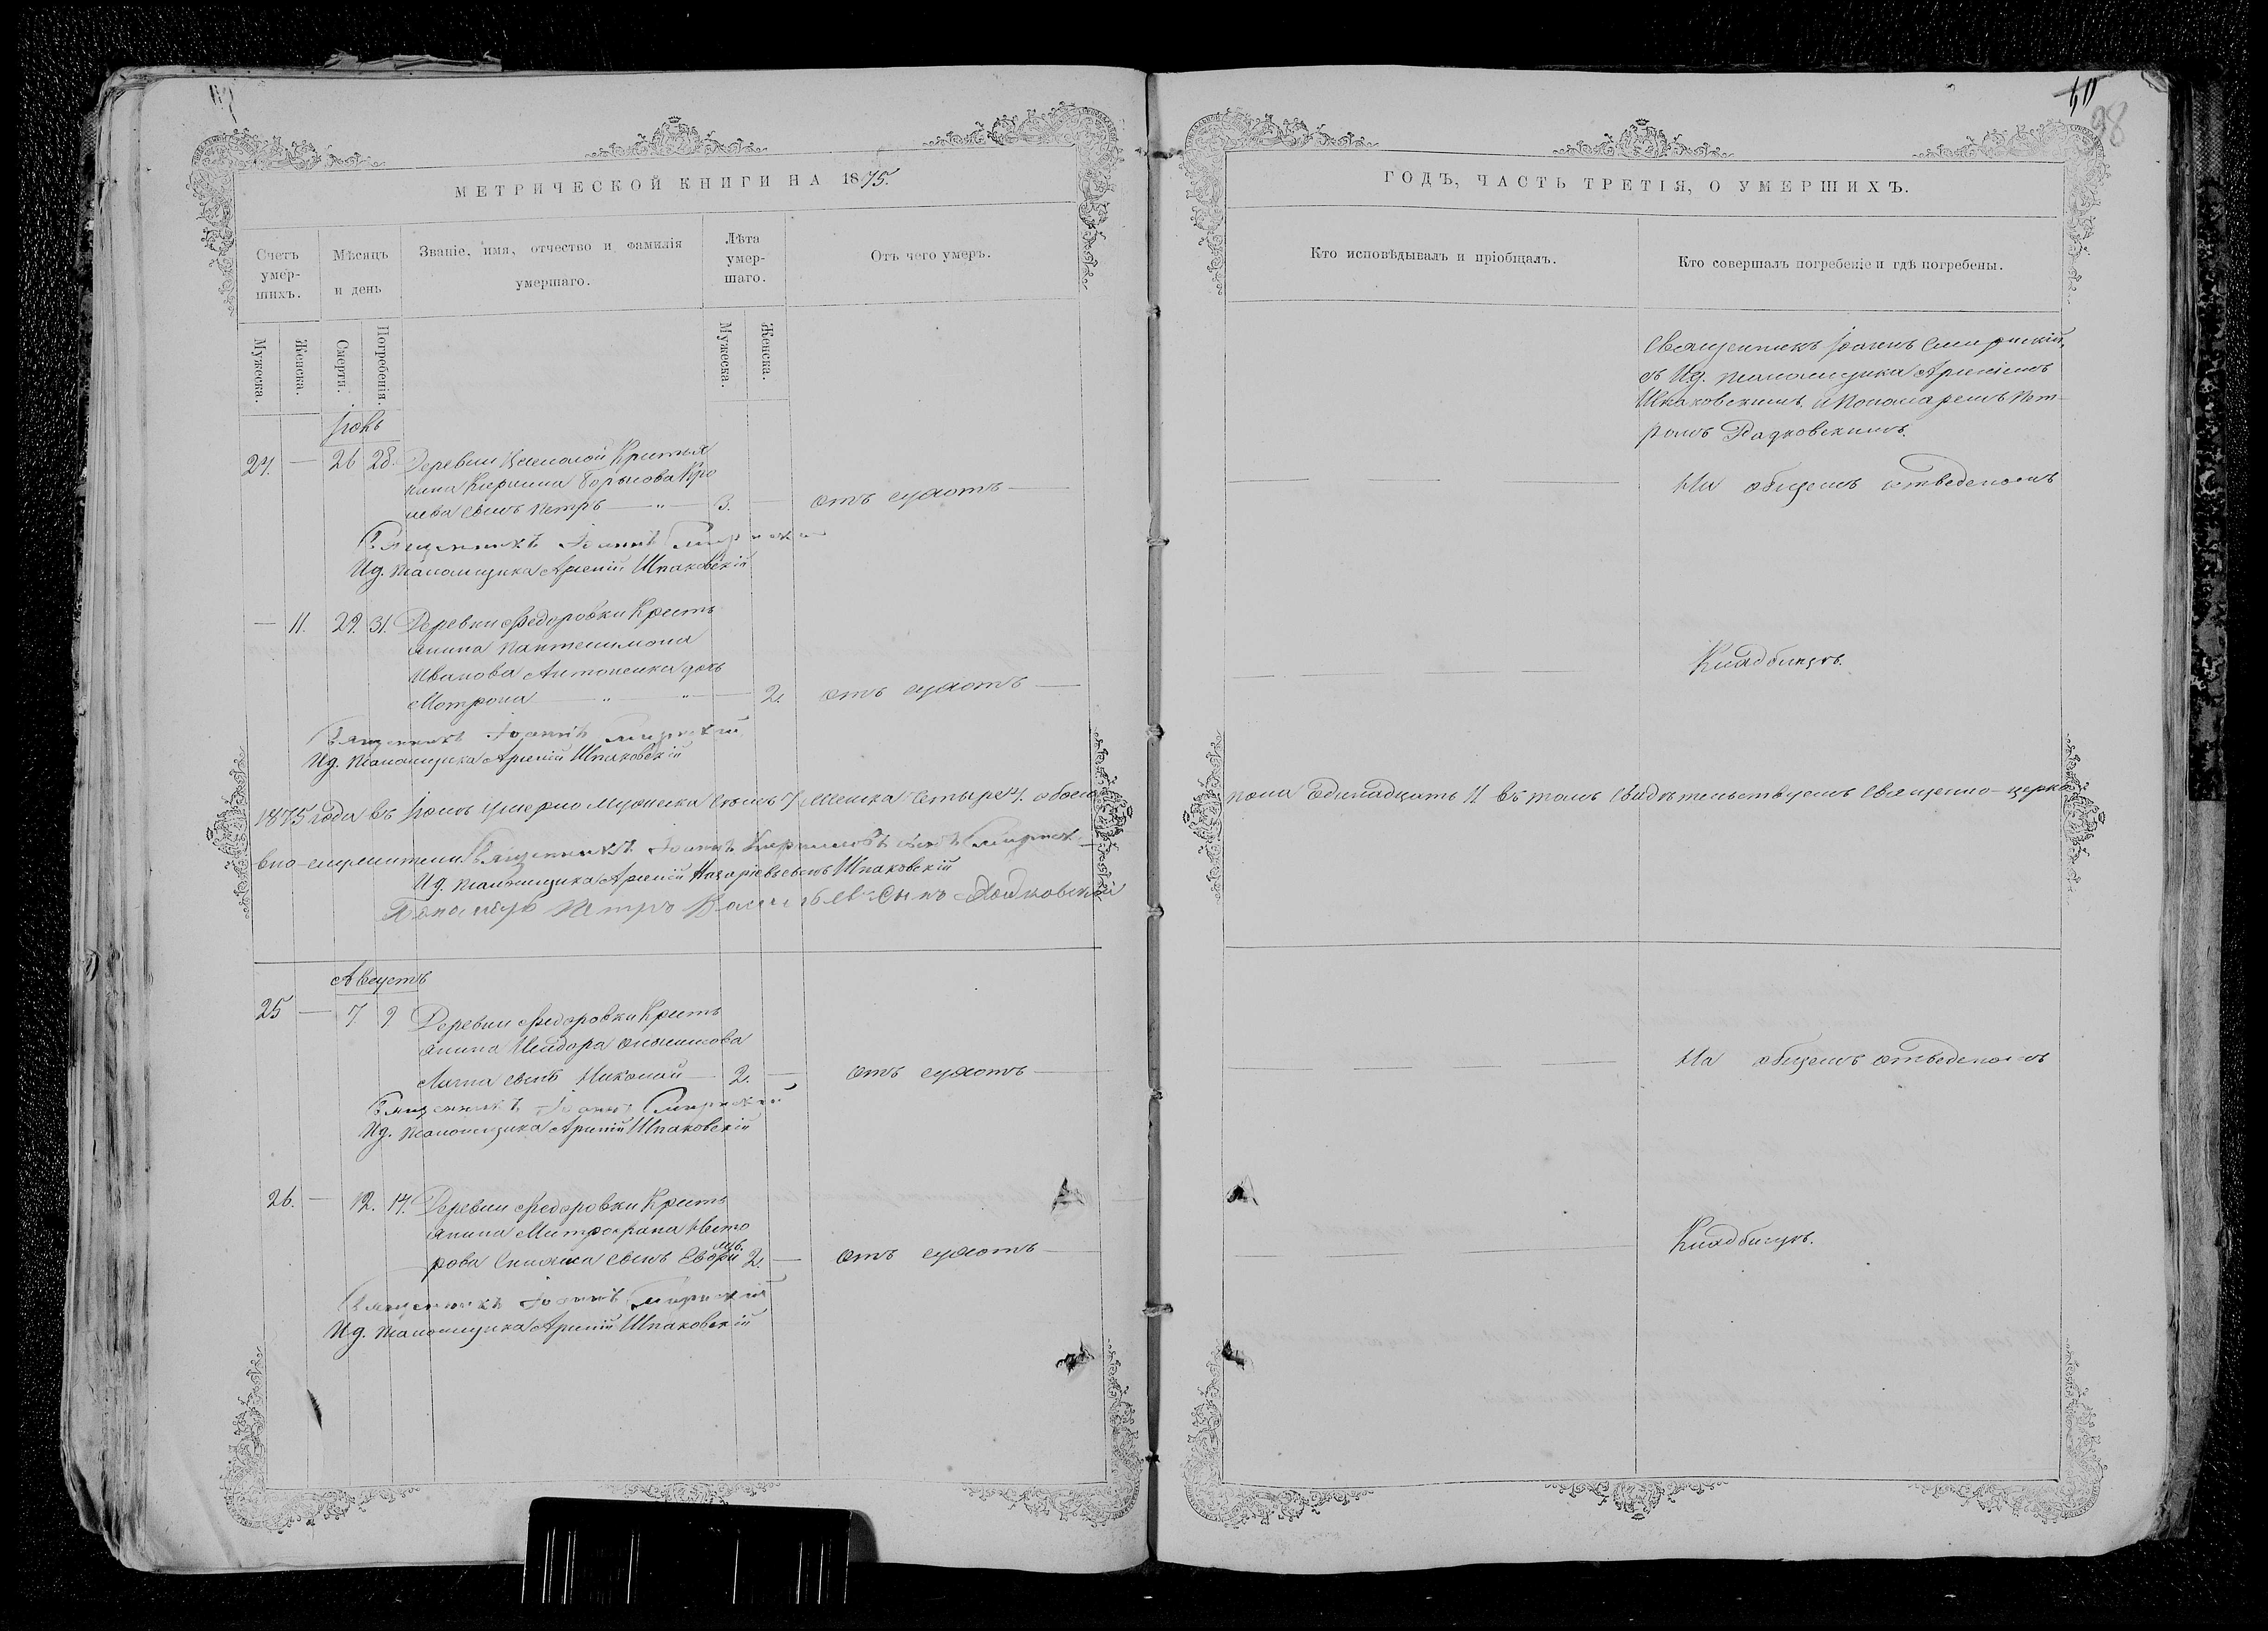 МЕТРИЧЕСКОЙ КНИГИ НА 1875.
Счетъ умер-шихъ.
Мѣсяцъ и день
Званіе, имя, отчество и фамилія умершаго.
Лѣта умер-шаго.
Отъ чего умеръ.
Мужеска.
Женска.
Смерти.
Погребенія.
Мужеска.
Женска.
Іюль
24. — 26 28. Деревни Крестья
нина Борисова
сынъ Петръ — " — 3. — отъ сухотъ —
Священникъ Іоаннъ
Ид. Псаломщика Арсеній Шпаковскій
— 11. 29. 31. Деревни Федоровки Кресть
янина Пантелимона
Иванова Антоненка дочь
Матрона — " — " — 2. отъ сухотъ —
Священникъ Іоаннъ
Ид. Псаломщика Арсеній Шпаковскій
1875 года въ Іюлѣ умерло мужеска семь 7 женска четыре 4. обоего
вно-служители Священникъ Іоаннъ сынъ
Ид. Псаломщика Арсеній Назаріевъ сынъ Шпаковскій
Пономарь Петръ Васильевъ сынъ
Августъ
25 — 7 9 Деревни Федоровки Кресть
янина
сынъ Николай — 2. — отъ сухотъ —
Священникъ Іоаннъ
Ид. Псаломщика Арсеній Шпаковскій
26. — 12. 14. Деревни Федоровки Кресть
янина Митрофана Несто
рова сынъ 2. — отъ сухотъ —
Священникъ Іоаннъ
Ид. Псаломщика Арсеній Шпаковскій
98
ГОДЪ, ЧАСТЬ ТРЕТІЯ, О УМЕРШИХЪ.
Кто исповѣдывалъ и пріобщалъ.
Кто совершалъ погребеніе и гдѣ погребены.
Священникъ Іоаннъ
съ Ид. Псаломщика Арсеніемъ
Шпаковскимъ и Пономаремъ Пет-
ромъ
На общемъ отведеномъ
Кладбищѣ.
пола Одинадцать 11 въ томъ свидѣтельствуемъ Священно-церко
На общемъ отведеномъ
Кладбищѣ.